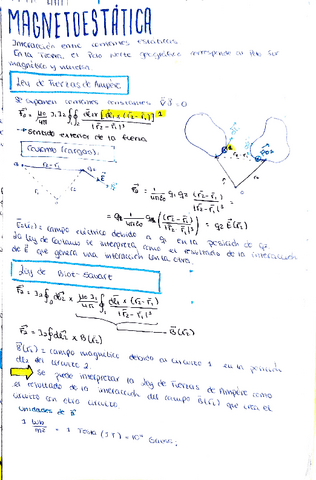 MAGNETOESTÁTICA
Interacción entre corrientes estáticas.
En la Tierra, el Polo Norte geográfico corresponde al Polo Sur
magnético y viceversa.
Ley de Fuerzas de Ampère
Se suponen corrientes constantes ∇·J = 0
F₂ = μ₀/4π I₂I₁ ∮∮ dl₂ × [dl₁ × (r₂ - r₁)] / |r₂ - r₁|³
→ Sentido exterior de la fuerza
Coulomb (cargas):
F₂ = 1/4πε₀ q₁ q₂ (r₂ - r₁) / |r₂ - r₁|³ =
= q₂ 1/4πε₀ q₁ (r₂ - r₁) / |r₂ - r₁|³ = q₂ E(r₂)
E(r₂) = campo eléctrico debido a q₁ en la posición de q₂.
La Ley de Coulomb se interpreta como el resultado de la interacción
de E que genera una interacción con la otra.
Ley de Biot-Savart
F₂ = I₂ ∮ dl₂ × μ₀ I₁/4π ∮ dl₁ × (r₂ - r₁) / |r₂ - r₁|³
B(r₂)
F₂ = I₂ ∮ dl₂ × B(r₂)
B(r₂) = campo magnético debido al circuito 1 en la posición
dl₂ del circuito 2.
Se puede interpretar la Ley de Fuerzas de Ampère como
el resultado de la interacción del campo B(r₂) que crea el
circuito con otro circuito.
Unidades de B
1 Wb/m² = 1 Tesla (1T) = 10⁴ Gauss.